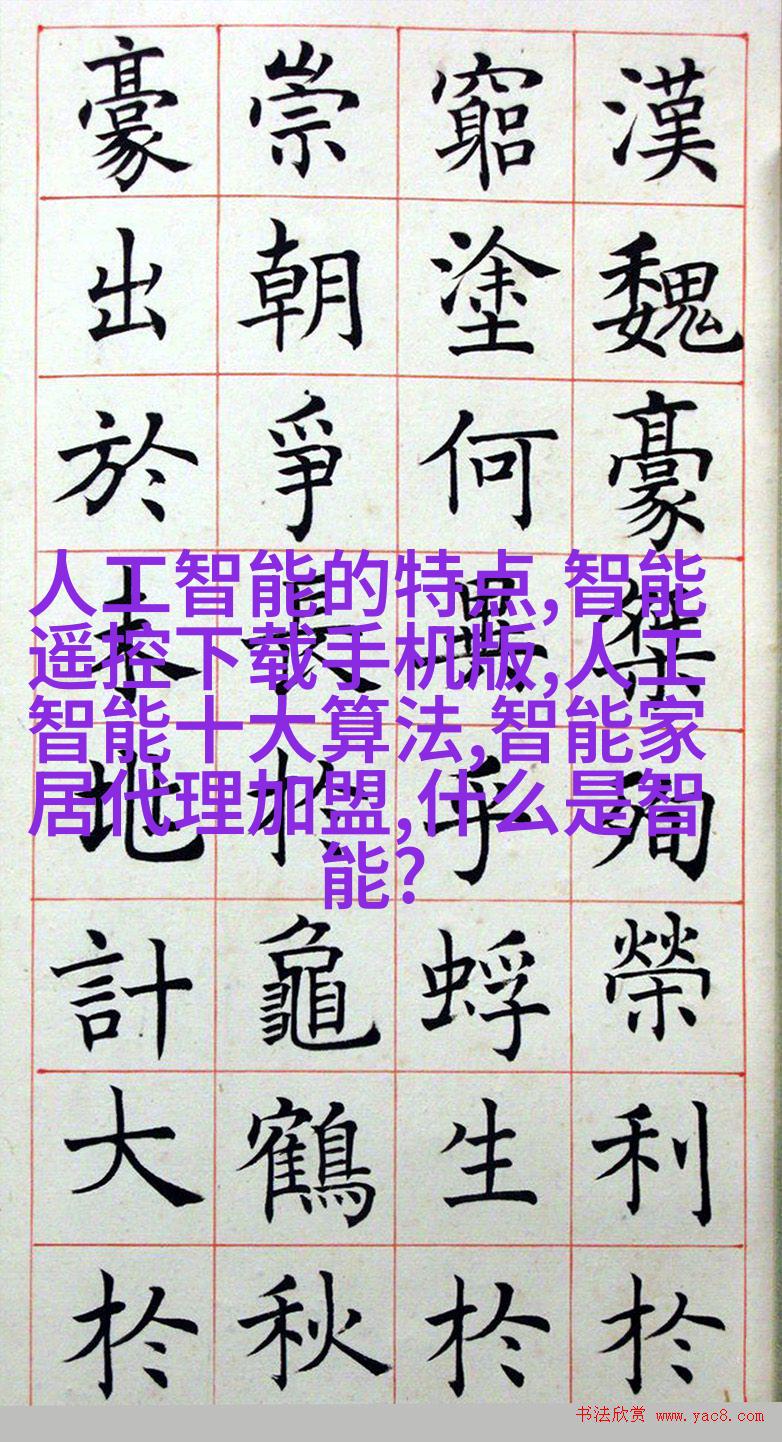 漢魏豪桀殉榮利扵
竆塗何異乎蜉生扵
崇朝爭長扵龜鶴秋
豪出於地計大扵
人工智能的特点,智能
遥控下载手机版,人工
智能十大算法,智能家
居代理加盟,什么是智
能?
书法欣赏 www.yac8.com